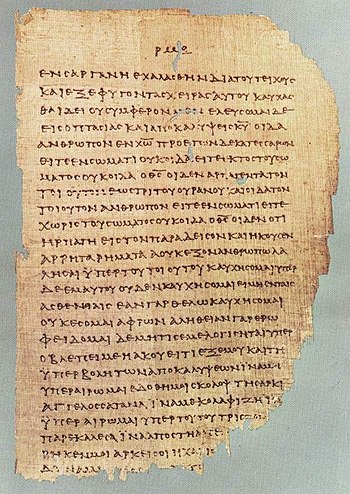 ΕΝ ϹΑΡΓΑΝΗ ΕΧΑΛΑϹΘΗΝ ΔΙΑ ΤΟΥ ΤΕΙΧΟΥϹ
ΚΑΙ ΕΞΕΦΥΓΟΝ ΤΑϹ ΧΕΙΡΑϹ ΑΥΤΟΥ ΚΑΥΧΑϹ
ΘΑΙ ΔΕΙ ΟΥ ϹΥΜΦΕΡΟΝ ΜΕΝ ΕΛΕΥϹΟΜΑΙ ΔΕ
ΕΙϹ ΟΠΤΑϹΙΑϹ ΚΑΙ ΑΠΟΚΑΛΥΨΕΙϹ Κ̅Υ̅ ΟΙΔΑ
ΑΝΘΡΩΠΟΝ ΕΝ Χ̅Ρ̅Ω̅ ΠΡΟ ΕΤΩΝ ΔΕΚΑΤΕϹϹΑΡΩΝ
ΕΙΤΕ ΕΝ ϹΩΜΑΤΙ ΟΥΚ ΟΙΔΑ ΕΙΤΕ ΕΚΤΟϹ ΤΟΥ ϹΩ
ΜΑΤΟϹ ΟΥΚ ΟΙΔΑ Ο Θ̅Ϲ̅ ΟΙΔΕΝ ΑΡΠΑΓΕΝΤΑ ΤΟΝ
ΤΟΙΟΥΤΟΝ ΕΩϹ ΤΡΙΤΟΥ ΟΥΡΑΝΟΥ ΚΑΙ ΟΙΔΑ ΤΟΝ
ΤΟΙΟΥΤΟΝ ΑΝΘΡΩΠΟΝ ΕΙΤΕ ΕΝ ϹΩΜΑΤΙ ΕΙΤΕ
ΧΩΡΙϹ ΤΟΥ ϹΩΜΑΤΟϹ ΟΥΚ ΟΙΔΑ Ο Θ̅Ϲ̅ ΟΙΔΕΝ ΟΤΙ
ΗΡΠΑΓΗ ΕΙϹ ΤΟΝ ΠΑΡΑΔΕΙϹΟΝ ΚΑΙ ΗΚΟΥϹΕΝ
ΑΡΡΗΤΑ ΡΗΜΑΤΑ Α ΟΥΚ ΕΞΟΝ ΑΝΘΡΩΠΩ ΛΑ
ΛΗϹΑΙ ΥΠΕΡ ΤΟΥ ΤΟΙΟΥΤΟΥ ΚΑΥΧΗϹΟΜΑΙ ΥΠΕΡ
ΔΕ ΕΜΑΥΤΟΥ ΟΥΔΕΝ ΚΑΥΧΗϹΟΜΑΙ ΕΙ ΜΗ ΕΝ ΤΑΙϹ
ΑϹΘΕΝΕΙΑΙϹ ΕΑΝ ΓΑΡ ΘΕΛΩ ΚΑΥΧΗϹΟΜΑΙ
ΟΥΚ ΕϹΟΜΑΙ ΑΦΡΩΝ ΑΛΗΘΕΙΑΝ ΓΑΡ ΕΡΩ
ΦΕΙΔΟΜΑΙ ΔΕ ΜΗ ΤΙϹ ΕΜΕ ΛΟΓΙϹΗΤΑΙ ΥΠΕΡ
Ο ΒΛΕΠΕΙ ΜΕ Η ΑΚΟΥΕΙ ΤΙ ΕΞ ΕΜΟΥ ΚΑΙ ΤΗ
ΥΠΕΡΒΟΛΗ ΤΩΝ ΑΠΟΚΑΛΥΨΕΩΝ ΙΝΑ Μ
ΥΠΕΡΑΙΡΩΜΑΙ ΕΔΟΘΗ ΜΟΙ ϹΚΟΛΟΨ ΤΗ ϹΑΡΚΙ
ΑΓΓΕΛΟϹ ϹΑΤΑΝΑ ΙΝΑ ΜΕ ΚΟΛΑΦΙΖΗ Ι
ΥΠΕΡΑΙΡΩΜΑΙ ΥΠΕΡ ΤΟΥΤΟΥ ΤΡΙϹ
ΠΑΡΕΚΑΛΕϹΑ ΙΝΑ ΑΠΟϹΤΗ
ΡΗΚΕΝ ΜΟΙ ΑΡΚΕΙ ϹΟΙ Η ΧΑ